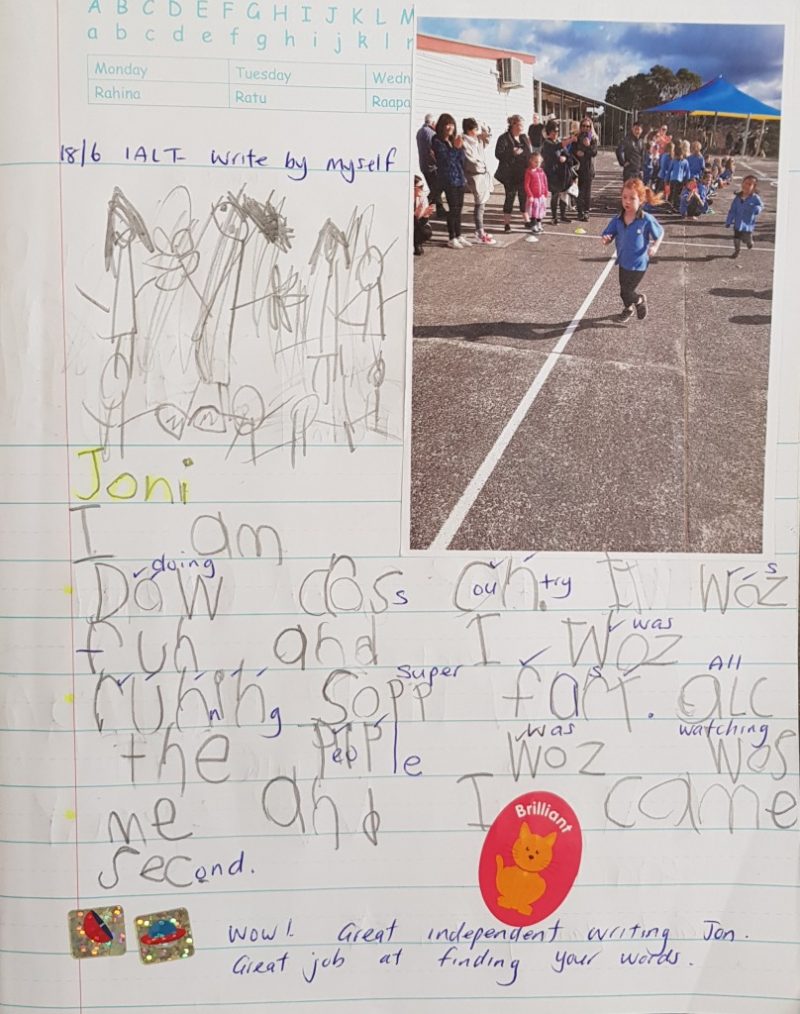 A B C D E F G H I J K L M
a b c d e f g h i j k l
Monday Tuesday Wedn
Rahina Ratu Raapa
18/6 IALT- write by myself
Joni
I am
doing
Dow coss country It woz s
was
fun and I woz
Super All
runing Sopp fast. alc
was watching
the people woz wos
me and I came
second.
Brilliant
Wow! Great independent writing Jon.
Great job at finding your words.